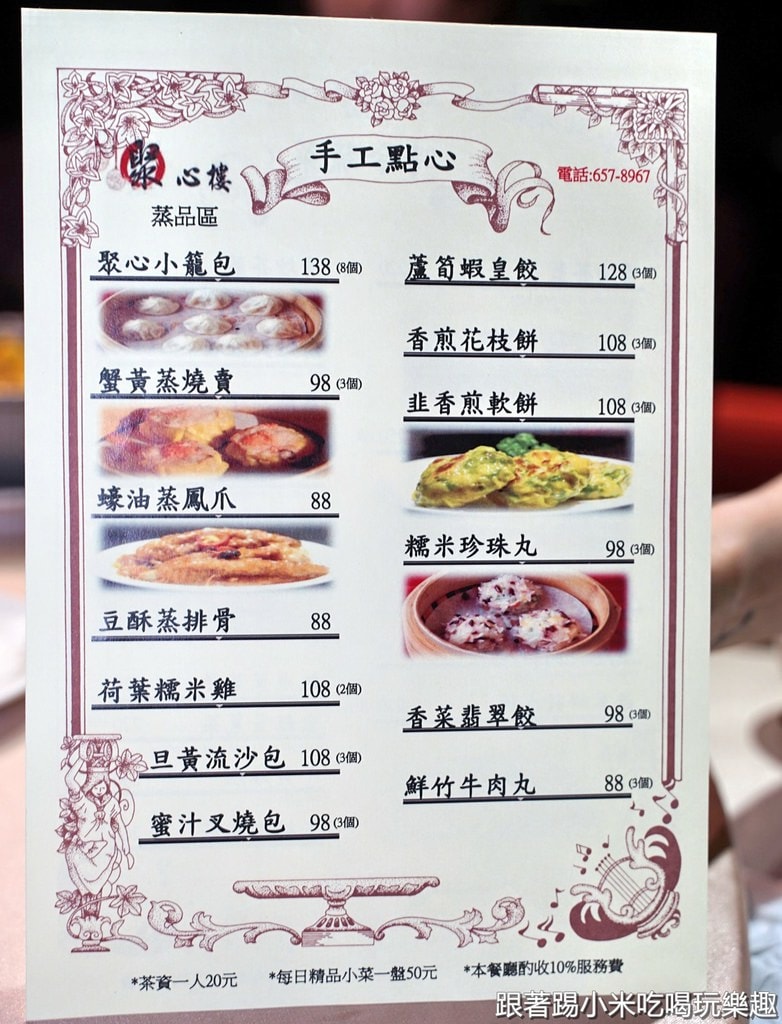 聚心樓
手工點心
電話:657-8967
蒸品區
聚心小籠包 138 (8個)
蟹黃蒸燒賣 98 (3個)
蠔油蒸鳳爪 88
豆酥蒸排骨 88
荷葉糯米雞 108 (2個)
旦黃流沙包 108 (3個)
蜜汁叉燒包 98 (3個)
蘆筍蝦皇餃 128 (3個)
香煎花枝餅 108 (3個)
韭香煎軟餅 108 (3個)
糯米珍珠丸 98 (3個)
香菜翡翠餃 98 (3個)
鮮竹牛肉丸 88 (3個)
*茶資一人20元 *每日精品小菜一盤50元 *本餐廳酌收10%服務費
跟著踢小米吃喝玩樂趣